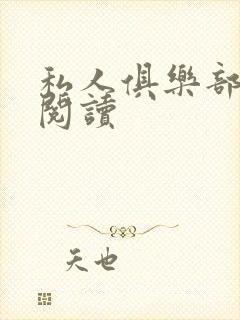 私人俱樂部
閱讀
天也